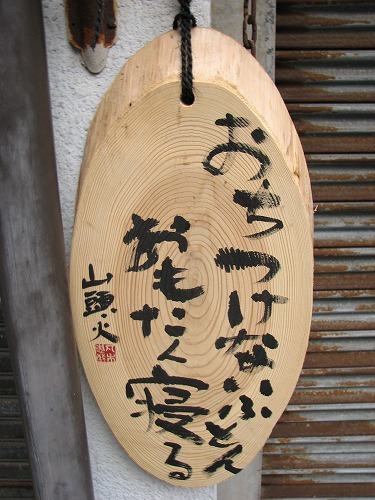 おちつけないふとん
おもたく寝る
山頭火